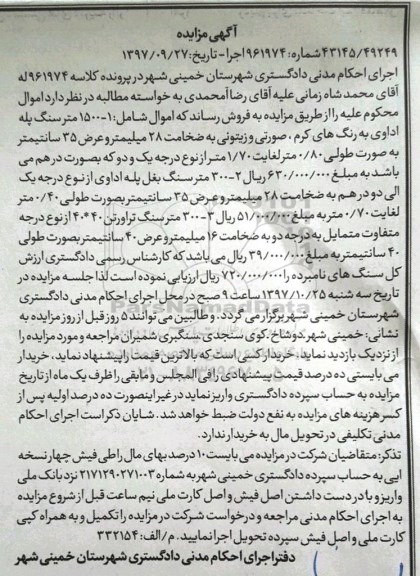 آگهی مزایده
۴۳۱۴۵/۴۹۲۴۹ شماره: ۹۶۱۹۷۴ اجرا - تاریخ: ۱۳۹۷/۰۹/۲۷
اجرای احکام مدنی دادگستری شهرستان خمینی شهر در پرونده کلاسه ۹۶۱۹۷۴ له
آقای محمد شاه زمانی علیه آقای رضا آمحمدی به خواسته مطالبه در نظر دارد اموال
محکوم علیه را از طریق مزایده به فروش رساند که اموال شامل: ۱-۱۵۰۰ متر سنگ پله
اداوی به رنگ های کرم ، صورتی و زیتونی به ضخامت ۲۸ میلیمتر و عرض ۳۵ سانتیمتر
به صورت طولی ۰/۸۰ متر لغایت ۱/۷۰ متر از نوع درجه یک و دو که بصورت در هم می
باشد به مبلغ ۶۳۰/۰۰۰/۰۰۰ ریال ۲-۳۰۰ متر سنگ بغل پله اداوی از نوع درجه یک
الی دو در هم به ضخامت ۲۸ میلیمتر و عرض ۳۵ سانتیمتر بصورت طولی ۰/۴۰ متر
لغایت ۰/۷۰ متر به مبلغ ۵۱/۰۰۰/۰۰۰ ریال ۳-۳۰۰ متر سنگ تراورتن ۴۰*۴۰ از نوع درجه
متفاوت متمایل به درجه دو به ضخامت ۱۶ میلیمتر و عرض ۴۰ سانتیمتر بصورت طولی
۴۰ سانتیمتر به مبلغ ۳۹/۰۰۰/۰۰۰ ریال می باشد که کارشناس رسمی دادگستری ارزش
کل سنگ های نامبرده را ۷۲۰/۰۰۰/۰۰۰ ریال ارزیابی نموده است لذا جلسه مزایده در
تاریخ سه شنبه ۱۳۹۷/۱۰/۲۵ ساعت ۹ صبح در محل اجرای احکام مدنی دادگستری
شهرستان خمینی شهر برگزار می گردد، و طالبین می توانند ۵ روز قبل از روز مزایده به
نشانی: خمینی شهر، دوشاخ، کوی سنجدی، سنگبری شمیران مراجعه و مورد مزایده را
از نزدیک بازدید نماید، خریدار کسی است که بالاترین قیمت را پیشنهاد نماید، خریدار
می بایستی ده درصد قیمت پیشنهادی را فی المجلس و مابقی را ظرف یک ماه از تاریخ
مزایده به حساب سپرده دادگستری واریز نماید در غیر اینصورت ده درصد اولیه پس از
کسر هزینه های مزایده به نفع دولت ضبط خواهد شد. شایان ذکر است اجرای احکام
مدنی تکلیفی در تحویل مال به خریدار ندارد.
تذکر: متقاضیان شرکت در مزایده می بایست ۱۰ درصد بهای مال را طی فیش چهار نسخه
ایی به حساب سپرده دادگستری خمینی شهر به شماره ۲۱۷۱۲۹۰۲۷۱۰۰۳ نزد بانک ملی
واریز و با در دست داشتن اصل فیش و اصل کارت ملی نیم ساعت قبل از شروع مزایده
به اجرای احکام مدنی مراجعه و درخواست شرکت در مزایده را تکمیل و به همراه کپی
کارت ملی و اصل فیش سپرده تحویل اجرا نمایید. م/الف: ۳۳۲۱۵۴
دفتر اجرای احکام مدنی دادگستری شهرستان خمینی شهر